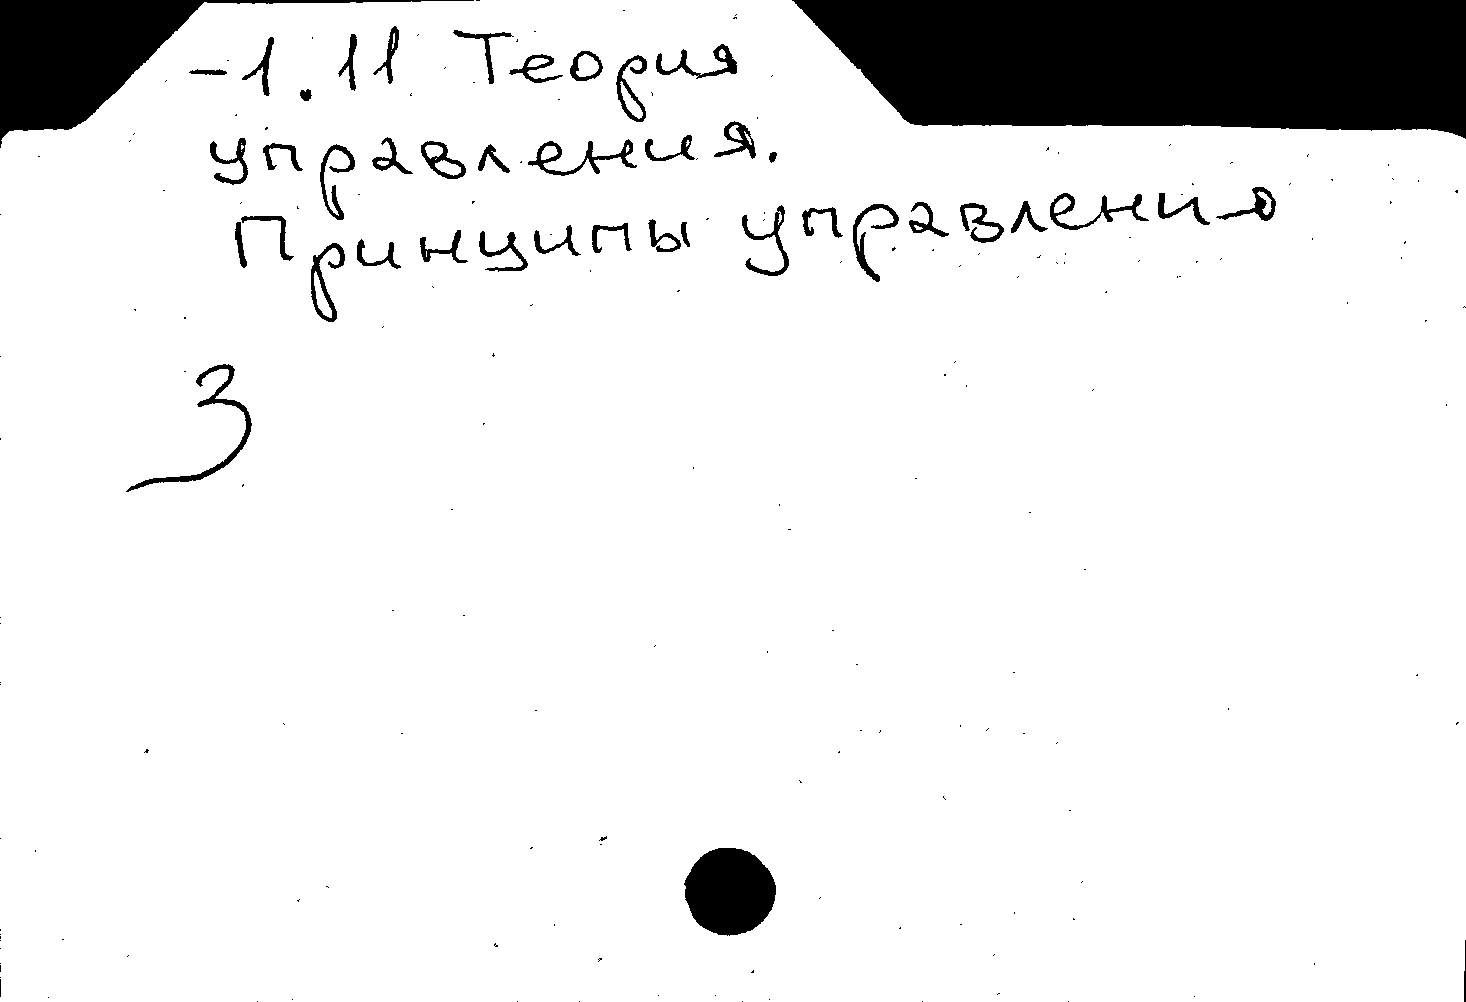 -1.11 Теория
управления.
Принципы управления
3